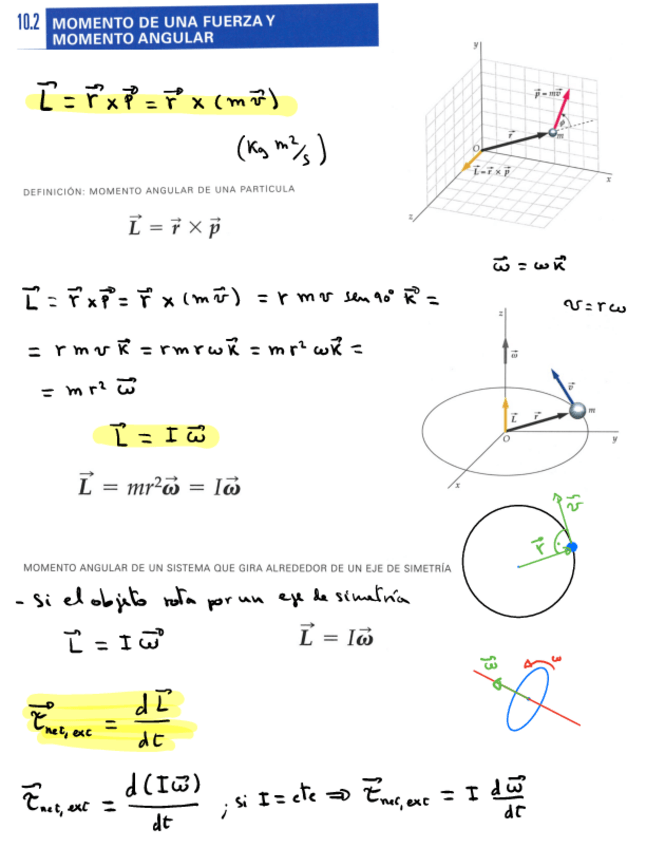 10.2 MOMENTO DE UNA FUERZA Y
MOMENTO ANGULAR
L⃗ = r⃗ × p⃗ = r⃗ × (m v⃗)
(Kg m²/s)
y
p⃗ = mv⃗
ϕ
r⃗
m
O
L⃗ = r⃗ × p⃗
x
z
DEFINICIÓN: MOMENTO ANGULAR DE UNA PARTICULA
L⃗ = r⃗ × p⃗
ω⃗ = ω k⃗
L⃗ = r⃗ × p⃗ = r⃗ × (m v⃗) = r m v sen 90° k⃗ =
v = r ω
= r m v k⃗ = r m r ω k⃗ = m r² ω k⃗ =
= m r² ω⃗
L⃗ = I ω⃗
L⃗ = mr²ω⃗ = Iω⃗
z
ω⃗
v⃗
L⃗
r⃗
m
O
y
x
v⃗
r⃗
MOMENTO ANGULAR DE UN SISTEMA QUE GIRA ALREDEDOR DE UN EJE DE SIMETRÍA
- Si el objeto rota por un eje de simetría
L⃗ = I ω⃗
L⃗ = Iω⃗
ω⃗
ω
τ⃗ net, exc = d L⃗ / dt
τ⃗ net, exc = d (I ω⃗) / dt ; si I = cte ⇒ τ⃗ net, exc = I d ω⃗ / dt